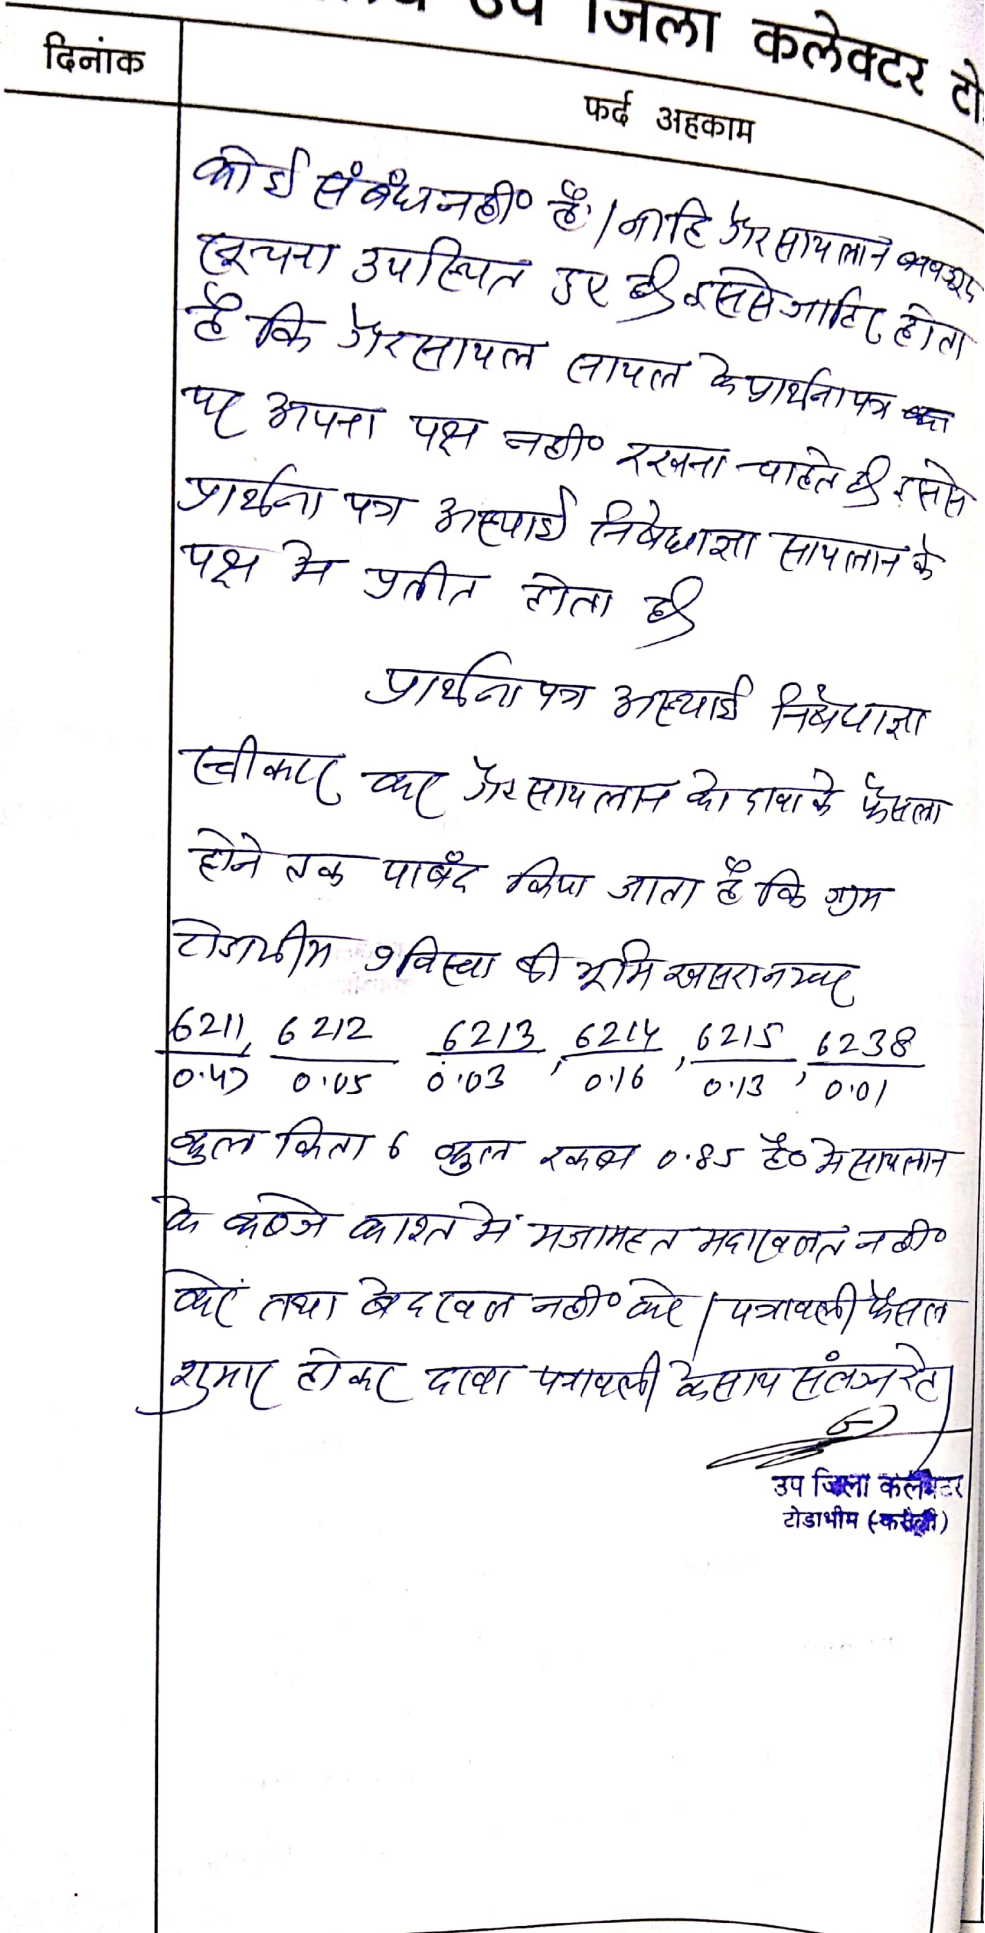 उप जिला कलेक्टर
दिनांक
फर्द अहकाम
कोई संबंध नहीं है। नाहि गैरसायलान बावजूद
सूचना उपस्थित हुए है। इससे जाहिर होता
है कि गैरसायल सायल के प्रार्थना पत्र
पर अपना पक्ष नहीं रखना चाहते है। इससे
प्रार्थना पत्र अस्थाई निषेधाज्ञा सायलान के
पक्ष मे प्रतीत होता है।
प्रार्थना पत्र अस्थाई निषेधाज्ञा
स्वीकार कर गैरसायलान को दावा के फैसला
होने तक पाबंद किया जाता है कि ग्राम
टोडाभीम 9 विस्वा की भूमि खसरा नम्बर
6211, 6212 6213, 6214, 6215, 6238
0.47 0.05 0.03 0.16 0.13 0.01
कुल किता 6 कुल रकबा 0.85 है० मे सायलान
के कब्जे काश्त में मजामहत मदाखलत नहीं
करें तथा बेदखल नहीं करे। पत्रावली फैसल
शुमार होकर दावा पत्रावली के साथ संलग्न रहे।
उप जिला कलेक्टर
टोडाभीम (करौली)